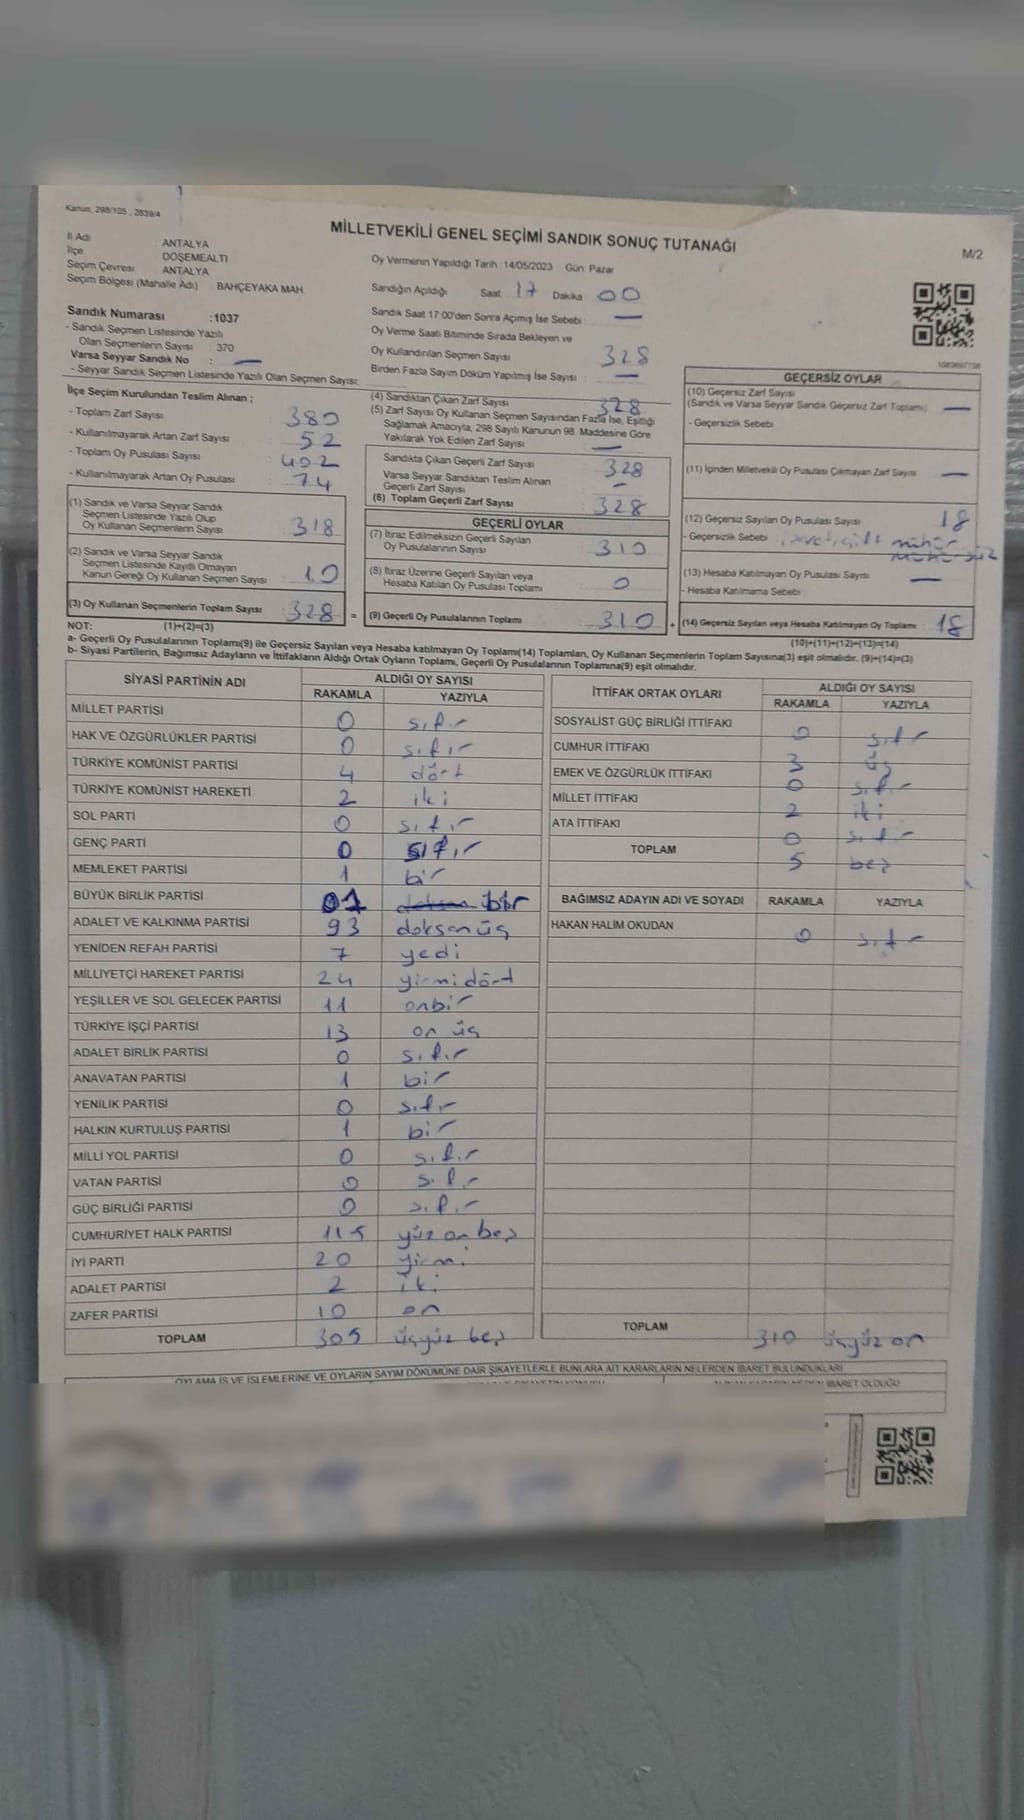 Kanun, 298/105 , 2839/4
MİLLETVEKİLİ GENEL SEÇİMİ SANDIK SONUÇ TUTANAĞI
M/2
İl Adı : ANTALYA
İlçe : DÖŞEMEALTI
Seçim Çevresi : ANTALYA
Seçim Bölgesi (Mahalle Adı) : BAHÇEYAKA MAH.
Oy Vermenin Yapıldığı Tarih :14/05/2023 Gün: Pazar
Sandığın Açıldığı Saat 17 Dakika 00
Sandık Saat 17:00'den Sonra Açılmış İse Sebebi : —
Oy Verme Saati Bitiminde Sırada Bekleyen ve
Oy Kullandırılan Seçmen Sayısı 328
Birden Fazla Sayım Döküm Yapılmış İse Sayısı —
Sandık Numarası :1037
- Sandık Seçmen Listesinde Yazılı
Olan Seçmenlerin Sayısı : 370
Varsa Seyyar Sandık No : —
- Seyyar Sandık Seçmen Listesinde Yazılı Olan Seçmen Sayısı:
İlçe Seçim Kurulundan Teslim Alınan ;
- Toplam Zarf Sayısı 380
- Kullanılmayarak Artan Zarf Sayısı 52
- Toplam Oy Pusulası Sayısı 402
- Kullanılmayarak Artan Oy Pusulası 74
(1) Sandık ve Varsa Seyyar Sandık
Seçmen Listesinde Yazılı Olup
Oy Kullanan Seçmenlerin Sayısı 318
(2) Sandık ve Varsa Seyyar Sandık
Seçmen Listesinde Kayıtlı Olmayan
Kanun Gereği Oy Kullanan Seçmen Sayısı 10
(3) Oy Kullanan Seçmenlerin Toplam Sayısı 328 =
(4) Sandıktan Çıkan Zarf Sayısı 328
(5) Zarf Sayısı Oy Kullanan Seçmen Sayısından Fazla İse, Eşitliği
Sağlamak Amacıyla, 298 Sayılı Kanunun 98. Maddesine Göre
Yakılarak Yok Edilen Zarf Sayısı —
Sandıkta Çıkan Geçerli Zarf Sayısı 328
Varsa Seyyar Sandıktan Teslim Alınan
Geçerli Zarf Sayısı —
(6) Toplam Geçerli Zarf Sayısı 328
GEÇERLİ OYLAR
(7) İtiraz Edilmeksizin Geçerli Sayılan
Oy Pusulalarının Sayısı 310
(8) İtiraz Üzerine Geçerli Sayılan veya
Hesaba Katılan Oy Pusulası Toplamı 0
(9) Geçerli Oy Pusulalarının Toplamı 310 +
GEÇERSİZ OYLAR
(10) Geçersiz Zarf Sayısı
(Sandık ve Varsa Seyyar Sandık Geçersiz Zarf Toplamı) —
- Geçersizlik Sebebi
(11) İçinden Milletvekili Oy Pusulası Çıkmayan Zarf Sayısı —
(12) Geçersiz Sayılan Oy Pusulası Sayısı 18
- Geçersizlik Sebebi mühür
(13) Hesaba Katılmayan Oy Pusulası Sayısı —
- Hesaba Katılmama Sebebi
(14) Geçersiz Sayılan veya Hesaba Katılmayan Oy Toplamı 18
NOT: (1)+(2)=(3) (10)+(11)+(12)+(13)=(14)
a- Geçerli Oy Pusulalarının Toplamı(9) ile Geçersiz Sayılan veya Hesaba katılmayan Oy Toplamı(14) Toplamları, Oy Kullanan Seçmenlerin Toplam Sayısına(3) eşit olmalıdır. (9)+(14)=(3)
b- Siyasi Partilerin, Bağımsız Adayların ve İttifakların Aldığı Ortak Oyların Toplamı, Geçerli Oy Pusulalarının Toplamına(9) eşit olmalıdır.
SİYASİ PARTİNİN ADI ALDIĞI OY SAYISI
RAKAMLA YAZIYLA
MİLLET PARTİSİ 0 sıfır
HAK VE ÖZGÜRLÜKLER PARTİSİ 0 sıfır
TÜRKİYE KOMÜNİST PARTİSİ 4 dört
TÜRKİYE KOMÜNİST HAREKETİ 2 iki
SOL PARTİ 0 sıfır
GENÇ PARTİ 0 sıfır
MEMLEKET PARTİSİ 1 bir
BÜYÜK BİRLİK PARTİSİ 01 bir
ADALET VE KALKINMA PARTİSİ 93 doksanüç
YENİDEN REFAH PARTİSİ 7 yedi
MİLLİYETÇİ HAREKET PARTİSİ 24 yirmidört
YEŞİLLER VE SOL GELECEK PARTİSİ 11 onbir
TÜRKİYE İŞÇİ PARTİSİ 13 on üç
ADALET BİRLİK PARTİSİ 0 sıfır
ANAVATAN PARTİSİ 1 bir
YENİLİK PARTİSİ 0 sıfır
HALKIN KURTULUŞ PARTİSİ 1 bir
MİLLİ YOL PARTİSİ 0 sıfır
VATAN PARTİSİ 0 sıfır
GÜÇ BİRLİĞİ PARTİSİ 0 sıfır
CUMHURİYET HALK PARTİSİ 115 yüz on beş
İYİ PARTİ 20 yirmi
ADALET PARTİSİ 2 iki
ZAFER PARTİSİ 10 on
TOPLAM 305 üçyüz beş
İTTİFAK ORTAK OYLARI ALDIĞI OY SAYISI
RAKAMLA YAZIYLA
SOSYALİST GÜÇ BİRLİĞİ İTTİFAKI 0 sıfır
CUMHUR İTTİFAKI 3 üç
EMEK VE ÖZGÜRLÜK İTTİFAKI 0 sıfır
MİLLET İTTİFAKI 2 iki
ATA İTTİFAKI 0 sıfır
TOPLAM 5 beş
BAĞIMSIZ ADAYIN ADI VE SOYADI RAKAMLA YAZIYLA
HAKAN HALİM OKUDAN 0 sıfır
TOPLAM 310 üçyüz on
OYLAMA İŞ VE İŞLEMLERİNE VE OYLARIN SAYIM DÖKÜMÜNE DAİR ŞİKAYETLERLE BUNLARA AİT KARARLARIN NELERDEN İBARET BULUNDUKLARI